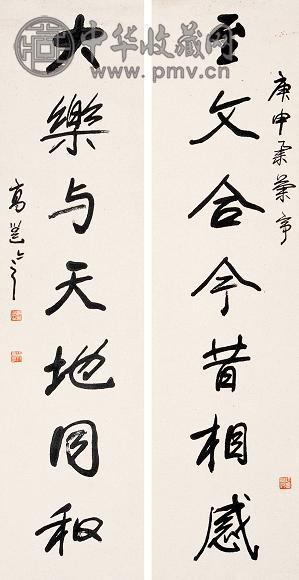 中华收藏网
www.pmv.cn
庚申
至文合今昔相感
大樂与天地同和